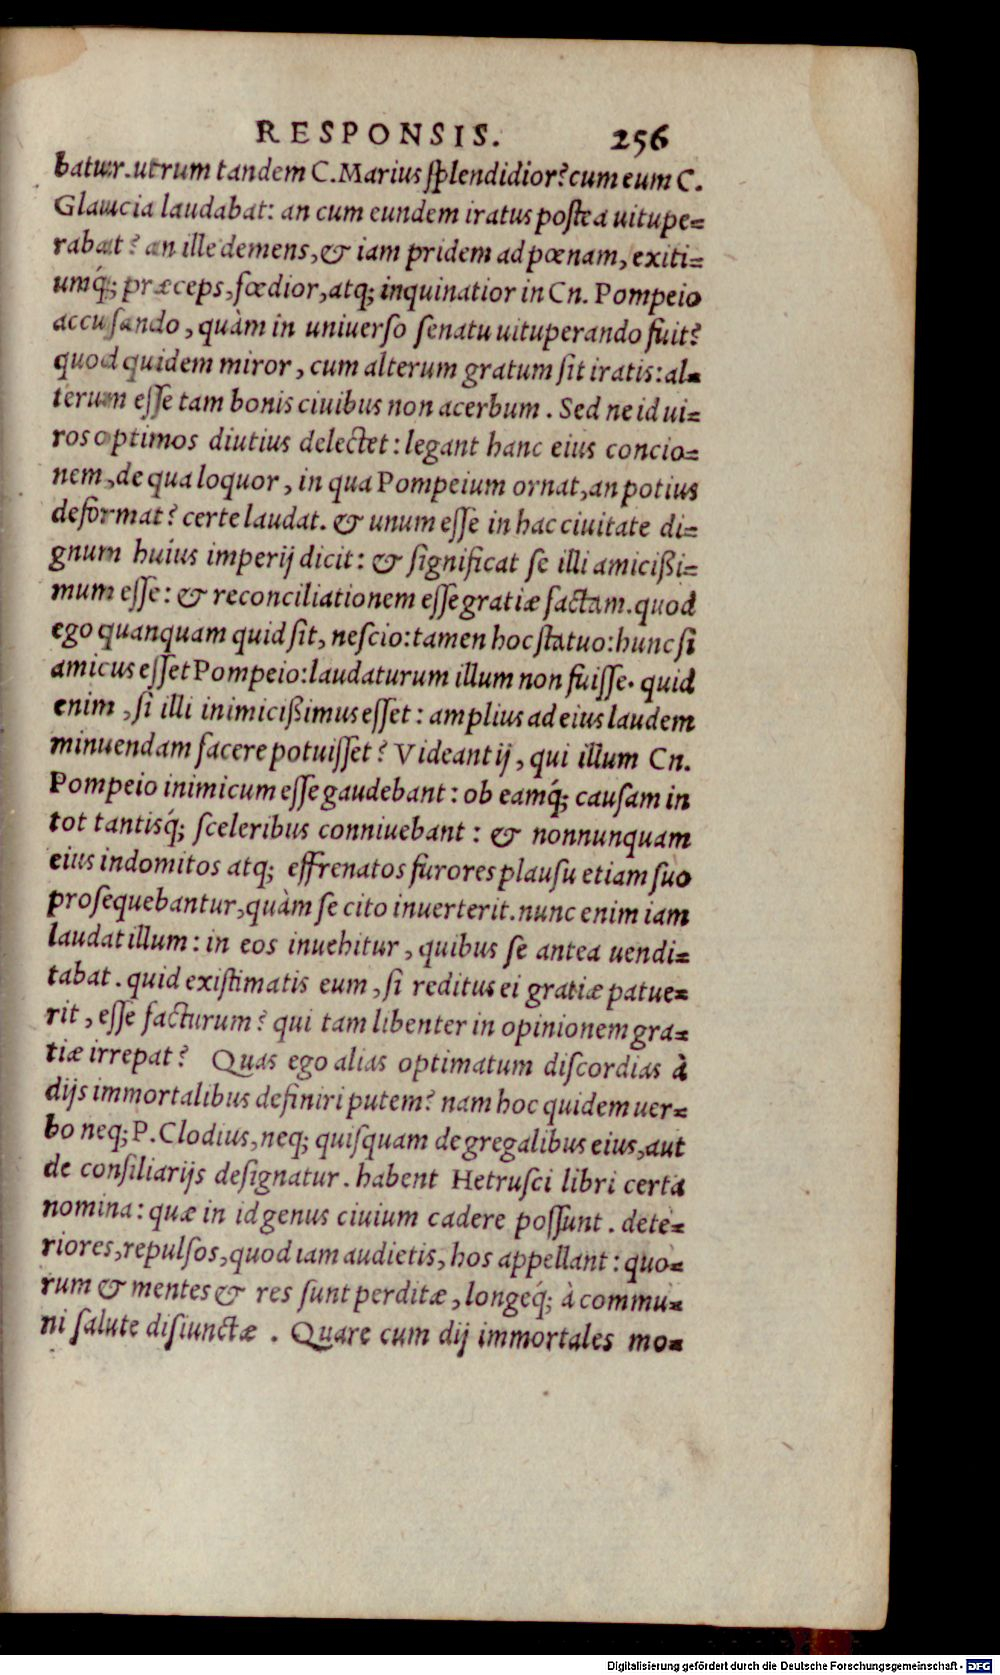 RESPONSIS. 256
batur. utrum tandem C. Marius ſplendidior? cum eum C.
Glaucia laudabat: an cum eundem iratus poſtea uitupe=
rabat? an ille demens, & iam pridem ad pœnam, exiti=
umq́; præceps, fœdior, atq; inquinatior in Cn. Pompeio
accuſando, quàm in uniuerſo ſenatu uituperando fuit?
quod quidem miror, cum alterum gratum ſit iratis: al=
terum eſſe tam bonis ciuibus non acerbum. Sed ne id ui=
ros optimos diutius delectet: legant hanc eius concio=
nem, de qua loquor, in qua Pompeium ornat, an potius
deformat? certe laudat. & unum eſſe in hac ciuitate di=
gnum huius imperij dicit: & ſignificat ſe illi amicißi=
mum eſſe: & reconciliationem eſſe gratiæ factam. quod
ego quanquam quid ſit, neſcio: tamen hoc ſtatuo: hunc ſi
amicus eſſet Pompeio: laudaturum illum non fuiſſe. quid
enim, ſi illi inimicißimus eſſet: amplius ad eius laudem
minuendam facere potuiſſet? Videant ij, qui illum Cn.
Pompeio inimicum eſſe gaudebant: ob eamq́; cauſam in
tot tantisq́; ſceleribus conniuebant: & nonnunquam
eius indomitos atq; effrenatos furores plauſu etiam ſuo
proſequebantur, quàm ſe cito inuerterit. nunc enim iam
laudat illum: in eos inuehitur, quibus ſe antea uendi=
tabat. quid exiſtimatis eum, ſi reditus ei gratiæ patue=
rit, eſſe facturum? qui tam libenter in opinionem gra=
tiæ irrepat? Quas ego alias optimatum diſcordias à
dijs immortalibus definiri putem? nam hoc quidem uer=
bo neq; P. Clodius, neq; quiſquam de gregalibus eius, aut
de conſiliarijs deſignatur. habent Hetruſci libri certa
nomina: quæ in id genus ciuium cadere poſſunt. dete=
riores, repulſos, quod iam audietis, hos appellant: quo=
rum & mentes & res ſunt perditæ, longeq́; à commu=
ni ſalute diſiunctæ. Quare cum dij immortales mo=
Digitalisierung gefördert durch die Deutsche Forschungsgemeinschaft - DFG